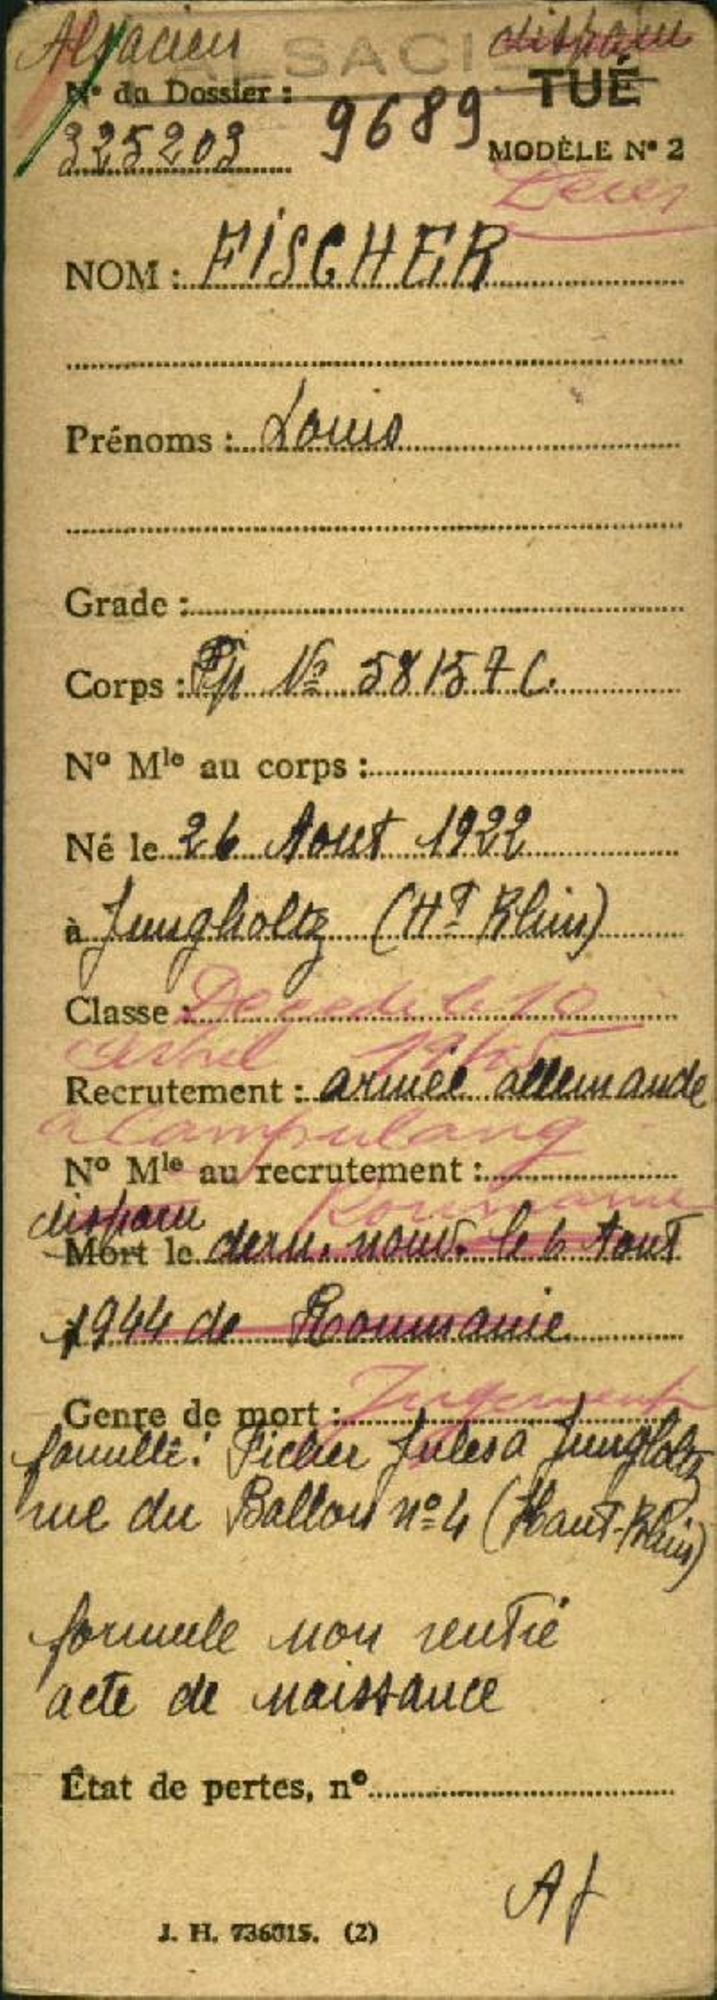 Alsacien ALSACI disparu
N° du Dossier : TUÉ
325203 9689 MODÈLE N° 2
NOM : FISCHER
Prénoms : Louis
Grade :
Corps : Fp № 58157 C.
N° Mle au corps :
Né le 26 Aout 1922
à Jungholtz (Ht Rhin)
Classe : Decede le 10
1945
Recrutement : armée allemande
a Campulung
N° Mle au recrutement :
disparu Roumanie
Mort le dern. nouv. le 6 Aout
1944 de Roumanie
Genre de mort : Jugement
famille : Ficher Jules à Jungholtz
rue du Ballon n° 4 (Haut-Rhin)
formule non rentré
acte de naissance
État de pertes, n°
Af
J. H. 736015. (2)